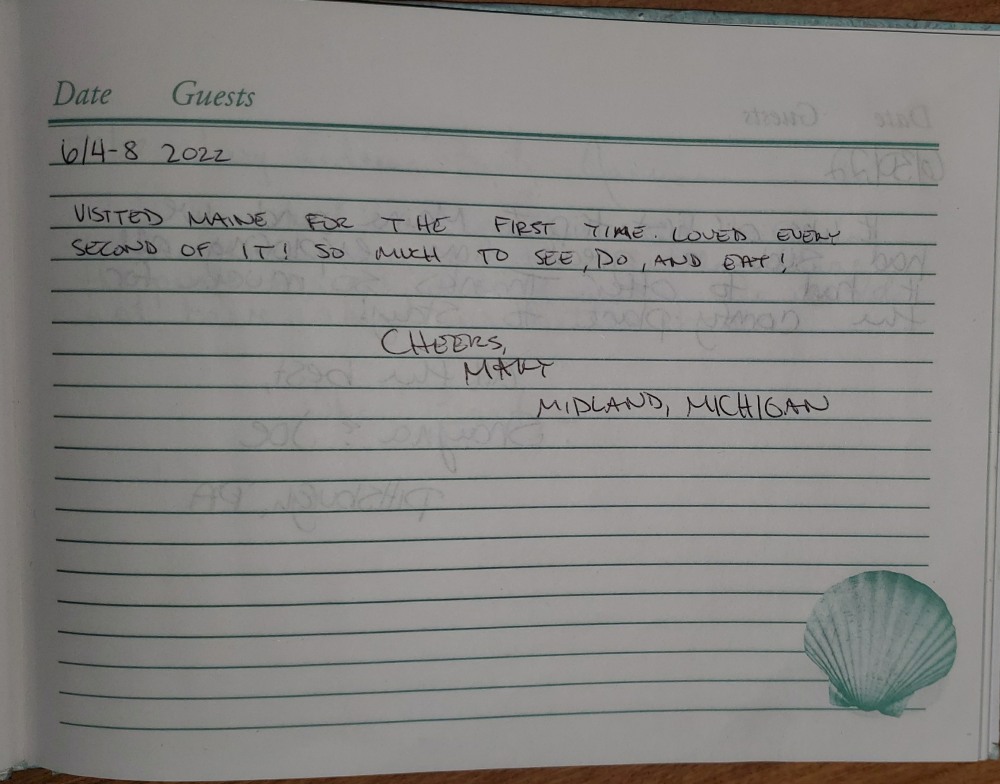 Date Guests
6/4-8 2022
VISITED MAINE FOR THE FIRST TIME. LOVED EVERY
SECOND OF IT! SO MUCH TO SEE, DO, AND EAT!
CHEERS,
MARY
MIDLAND, MICHIGAN